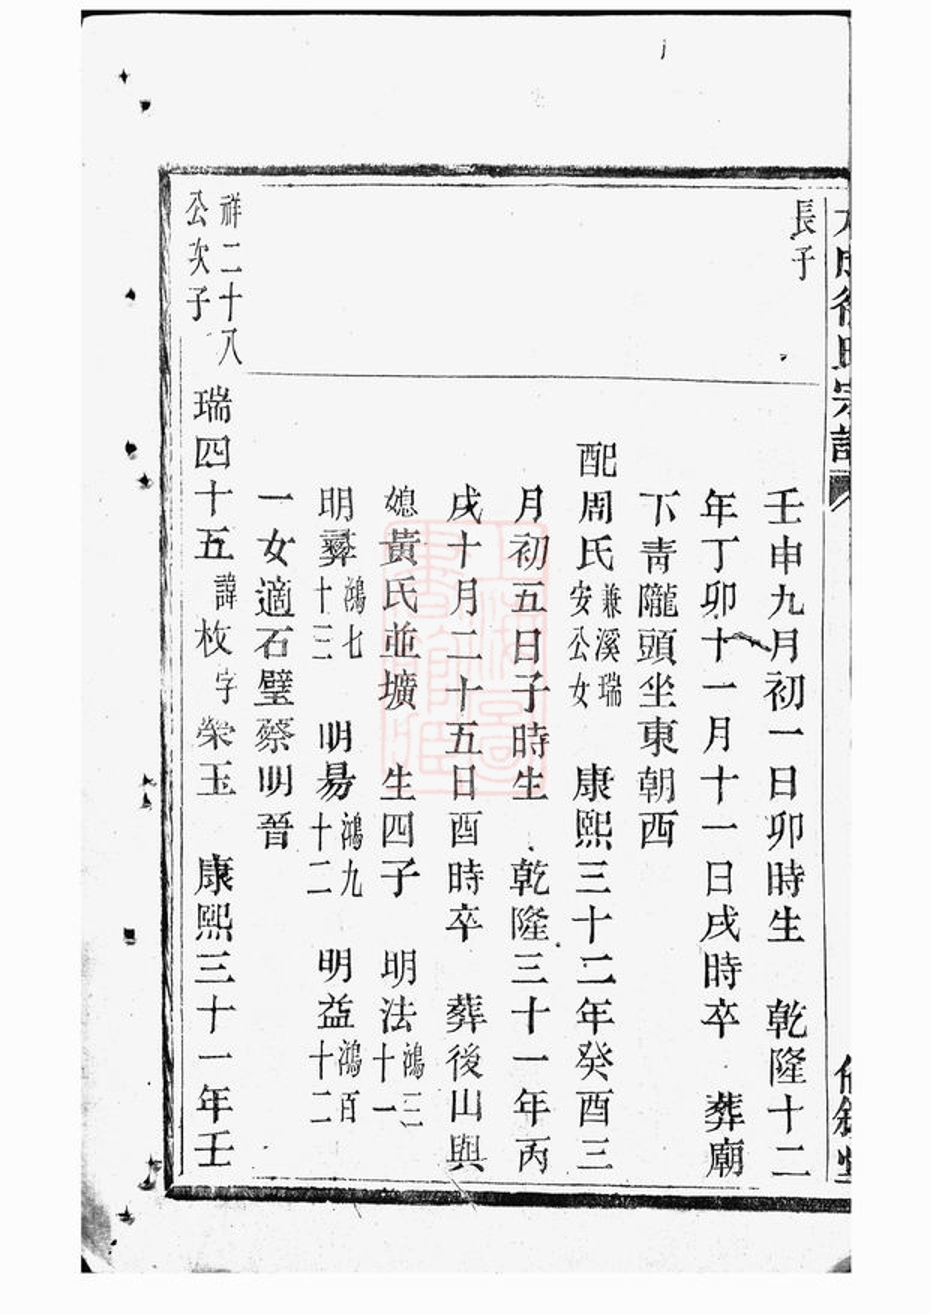 徐氏宗譜
長子
壬申九月初一日卯時生　乾隆十二
年丁卯十一月十一日戌時卒　葬廟
下靑隴頭坐東朝西
配周氏兼溪瑞安公女　康熙三十二年癸酉三
月初五日子時生　乾隆三十一年丙
戌十月二十五日酉時卒　葬後山與
媳黃氏並壙　生四子　明法鴻三十一
明彞鴻七十三　明易鴻九十二　明益鴻百十二
一女適石璧蔡明晉
祥二十八公次子
瑞四十五諱枚字榮玉　康熙三十一年壬